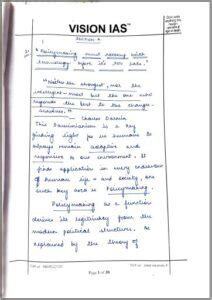 VISION IAS
SECTION A
"Policymaking must develop with
technology upon it's
"Neither the
strongest, nor the
intelligent must but the one who
responds the best to the change-
- Charles Darwin
This Darwinianism is a key
guiding light for us humans to
always remain adaptive and
responsive to our environment. It
finds application in every endeavour
of human life and society, one
such key area is Policymaking.
Policymaking as a function
derives its legitimacy from the
modern political structures. As
explained by the theory of
Page 1 of